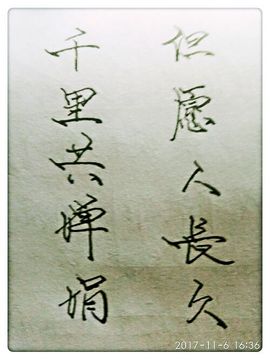 但愿人長久
千里共婵娟
2017-11-6 16:36